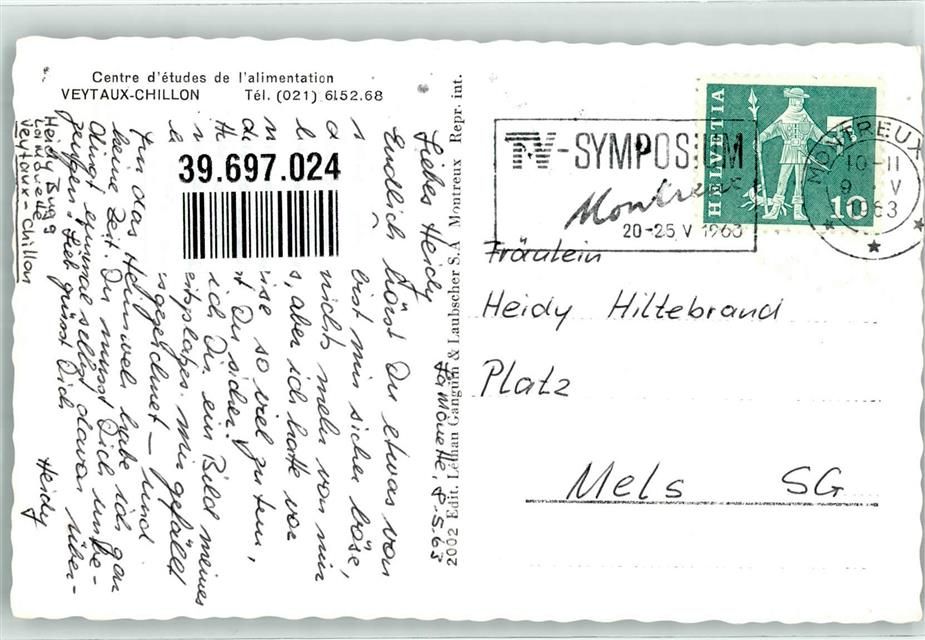 Centre d'études de l'alimentation
VEYTAUX-CHILLON Tél. (021) 6152.68
39.697.024
La Mouette, 8.5.63
Liebes Heidy
Endlich hörst Du etwas von
bist mir sicher böse,
nichts mehr von mir
aber ich hatte vor
ise so viel zu tun,
Du sicher
ich Dir ein Bild meines
mir gefällt
ausgezeichnet – und
für das Heimweh habe ich gar
keine Zeit. Du musst Dich unbe-
dingt einmal selbst davon über-
zeugen! Lieb grüsst Dich
Heidy
Heidy Bugg
La Mouette
Veytoux-Chillon
2002 Edit. Léthan Ganguin & Laubscher S.A Montreux Repr. int.
TV-SYMPOSIUM
Montreux
20-25 V 1963
HELVETIA
10
MONTREUX
10-11
9 V
1963
Fräulein
Heidy Hiltebrand
Platz
Mels SG